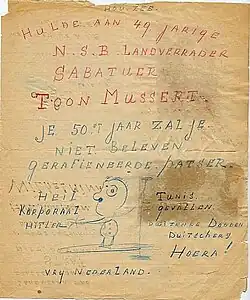 HOUZEE
HULDE AAN 49 JARIGE
N.S.B. LANDVERRADER
SABATUER
TOON MUSSERT.
JE 50ST JAAR ZAL JE
NIET BELEVEN
PATSER.
HEIL
KORPORAAL
HITLER
TUNIS
GEVALLEN.
DUIZENDE DOODEN
DUITSCHERS
HOERA!
VRY NEDERLAND.